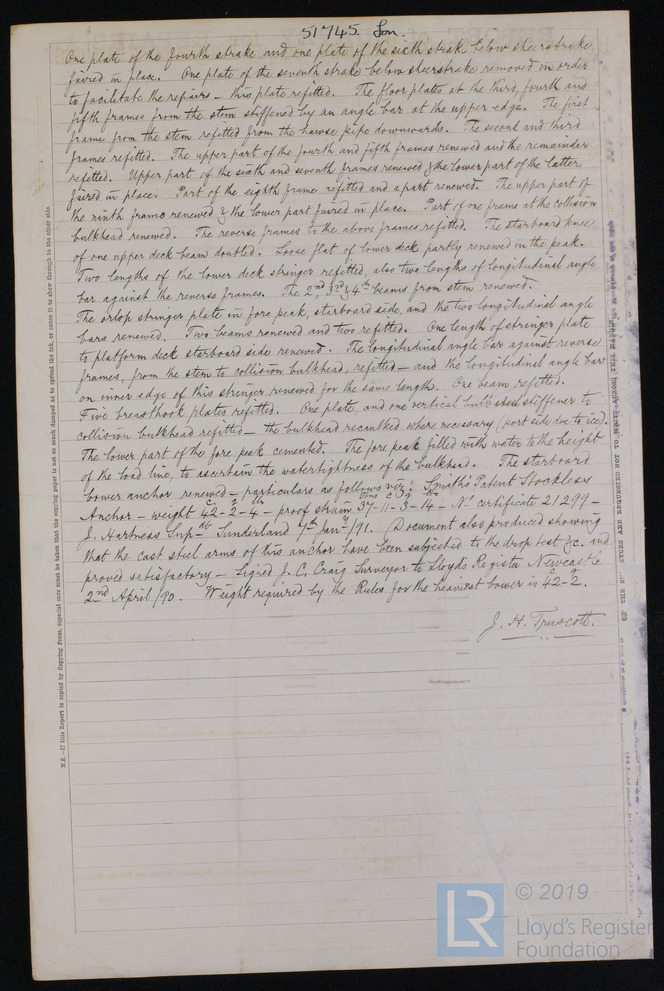 51745 Lon.
One plate of the fourth strake and one plate of the sixth strake below sheerstrake
faired in place. One plate of the seventh strake below sheerstrake removed in order
to facilitate the repairs – this plate refitted. The floor plates at the third, fourth and
fifth frames from the stem stiffened by an angle bar at the upper edge. The first
frame from the stem refitted from the hawse pipe downwards. The second and third
frames refitted. The upper part of the fourth and fifth frames renewed and the remainder
refitted. Upper part of the sixth and seventh frames renewed & the lower part of the latter
faired in place. Part of the eighth frame refitted and a part renewed. The upper part of
the ninth frame renewed & the lower part faired in place. Part of one frame at the collision
bulkhead renewed. The reverse frames to the above frames refitted. The starboard knee
of one upper deck beam doubled. Loose flat of lower deck partly renewed in the peak.
Two lengths of the lower deck stringer refitted, also two lengths of longitudinal angle
bar against the reverse frames. The 2nd, 3rd & 4th beams from stem renewed.
The orlop stringer plate in fore peak, starboard side, and the two longitudinal angle
bars renewed. Two beams renewed and two refitted. One length of stringer plate
to platform deck starboard side renewed. The longitudinal angle bar against reverse
frames, from the stem to collision bulkhead, refitted – and the longitudinal angle bar
on inner edge of this stringer renewed for the same length. One beam refitted.
Five breasthook plates refitted. One plate, and one vertical bulb steel stiffener to
collision bulkhead refitted – the bulkhead recaulked where necessary (port side due to ice).
The lower part of the fore peak cemented. The fore peak filled with water to the height
of the load line, to ascertain the watertightness of the bulkhead. The starboard
bower anchor renewed – particulars as follows viz: Smith's Patent Stockless
Anchor – weight 42-2-4 – proof strain 37-11-3-14 – No certificate 21299 –
J. Hartness Supdt Sunderland 7th Jany/91. Document also produced showing
that the cast steel arms of this anchor have been subjected to the drop test &c. and
proved satisfactory – Signed J. C. Craig Surveyor to Lloyds Register Newcastle
2nd April/90. Weight required by the Rules for the heaviest bower is 42-2.
J. H. Truscott.
N.B.—If this Report is copied by Copying Press, especial care must be taken that the copying paper is not so much damped as to spread the ink, or cause it to show through to the other side.
© 2019
LR
Lloyd's Register
Foundation